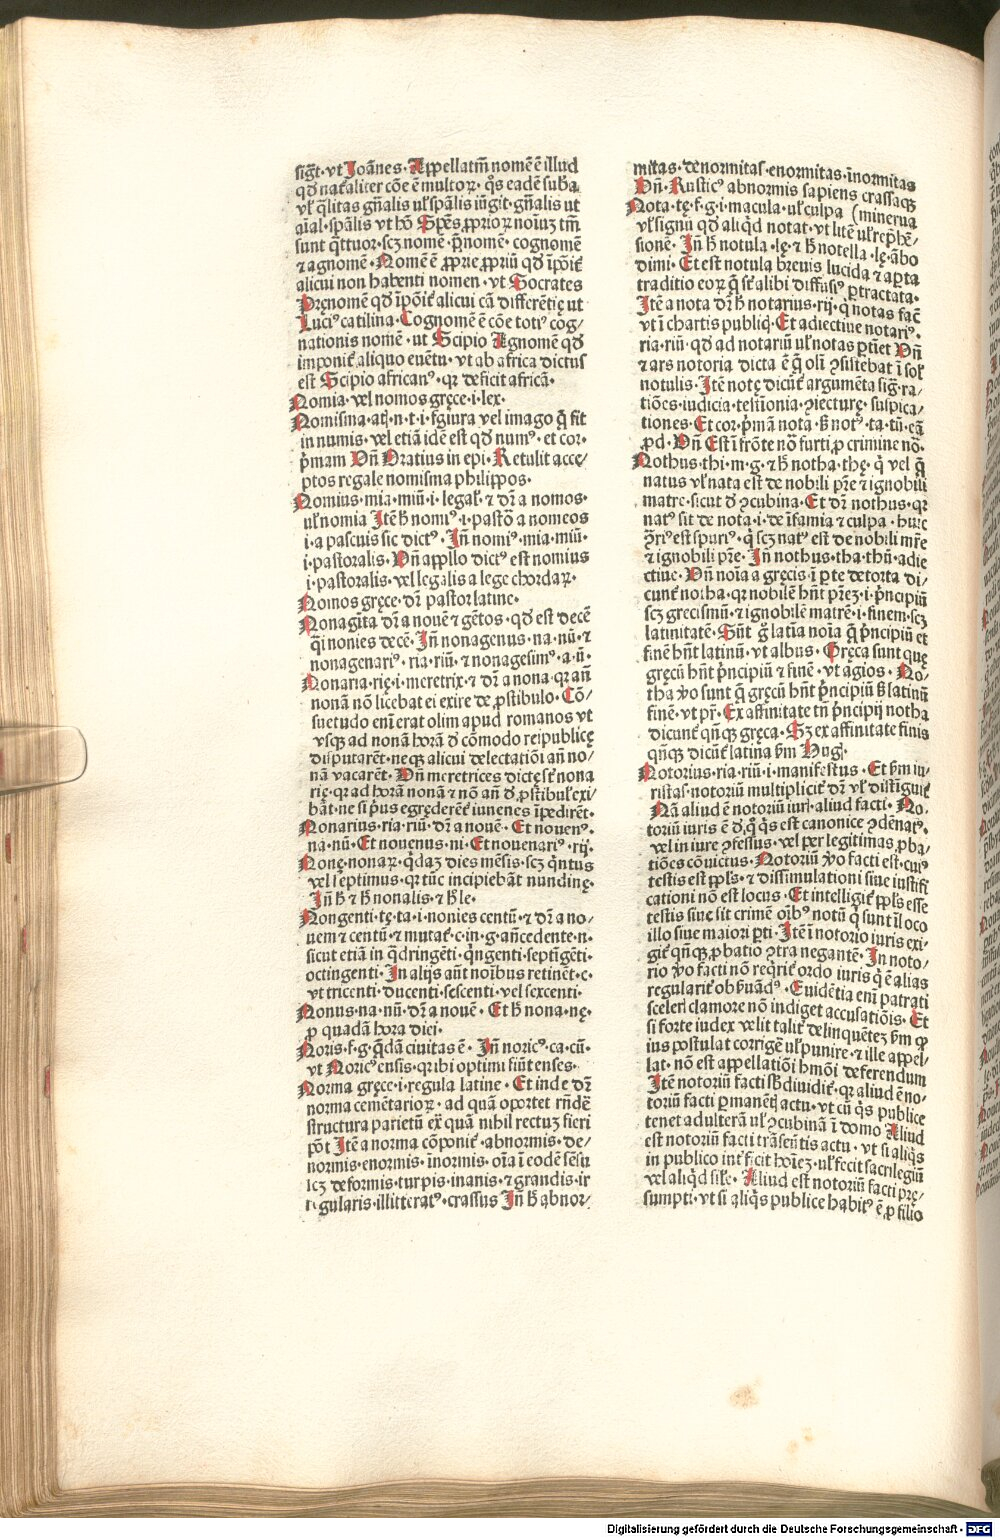 sigt̄·vt Joānes· Appellatiū nomē ē illud
qđ nať aliter cōe ē multoꝝ· qͦs eadē suba
vl' qͥlitas gn̄alis ul' spālis iūgit· gn̄alis ut
aīal· spālis vt hō Spēs ꝓprioꝝ noīuꝫ tm̄
sunt qͣttuor· scꝫ nomē· p̄nomē· cognomē
⁊ agnomē· Nomē ē ꝓprie ꝓpriū qđ īpōit̄
alicui non habenti nomen· vt Socrates
Pręnomē qđ īpōit̄ alicui cā differētię ut
Luciꝰ catilina· Cognomē ē cōe totiꝰ cog/
nationis nomē· ut Scipio Agnomē qđ
imponit̄ aliquo euētu· vt ab africa dictus
est Scipio africanꝰ· qꝛ deficit africā·
Nomia· vel nomos gręce·i·lex·
Nomisma·atꝭ·n·t·i·fgiura vel imago q̄ fit
in numis· vel etiā idē est qđ numꝰ· et cor·
p̄mam Vn̄ Oratius in epi· Retulit acce/
ptos regale nomisma philippos·
Nomius·mia·miū·i·legal'·⁊ dr̄ a nomos·
ul' nomia Itē h̄ nomiꝰ·i·pastō a nomeos
i·a pascuis sic dictꝰ· In̄ nomiꝰ·mia·miū·
i·pastoralis· Vn̄ appllo dictꝰ est nomius
i·pastoralis· vel legalis a lege chordaꝝ·
Nomos gręce· dr̄ pastor latine·
Nonagīta dr̄ a nouē ⁊ gētos· qđ est decē
q̄i nonies decē· In̄ nonagenus·na·nū·⁊
nonagenariꝰ·ria·riū·⁊ nonagesimꝰ·a·ū·
Nonaria·rię·i·meretrix·⁊ dr̄ a nona·qꝛ an̄
nonā nō licebat ei exire de ꝓstibulo· Cō/
suetudo eni̅ erat olim apud romanos vt
vsqꝫ ad nonā horā đ cōmodo reipublicę
disputarēt· neqꝫ alicui delectatiōi an̄ no/
nā vacarēt· Vn̄ meretrices dictę st̄ nona
rię· qꝛ ad horā nonā ⁊ nō an̄ đ ꝓstibul' exi/
bāt· ne si pͥus egręderēt̄ iuuenes īpedirēt·
Nonarius·ria·riū· dr̄ a nouē· Et nouenꝰ·
na·nū· Et nouenus·ni· Et nouenariꝰ·rij·
Nonę·nonaꝝ· qͥdaꝫ dies mēsis· scꝫ qͥntus
vel septimus· qꝛ tūc incipiebāt nundinę·
In̄ h̄ ⁊ h̄ nonalis·⁊ h̄ le·
Nongenti·tę·ta·i·nonies centū·⁊ dr̄ a no/
uem ⁊ centū·⁊ mutat̄·c·in·g·an̄cedente·n·
sicut etiā in qͣdringēti· qͥngenti· septīgēti·
octingenti· In alijs aūt noībus retinet·c·
vt tricenti· ducenti· sescenti· vel sexcenti·
Nonus·na·nū· dr̄ a nouē· Et h̄ nona·nę·
ꝓ quadā hora diei·
Noris·f·g· qͣdā ciuitas ē· In̄ noricꝰ·ca·cū·
vt Noricꝰ ensis· qꝛ ibi optimi fiūt enses·
Norma gręce·i·regula latine· Et inde dr̄
norma cemētarioꝝ· ad quā oportet rn̄dē
structura parietū ex quā nihil rectuꝫ fieri
pōt Itē a norma cōponit̄·abnormis·de/
normis·enormis·īnormis·oīa ī eodē sēsu
scꝫ deformis·turpis·inanis·⁊ grandis·ir
regularis·illitteratꝰ·crassus In̄ h̄ abnor/
mitas·denormitas·enormitas·īnormitas
Vn̄· Rusticꝰ abnormis sapiens crassaqꝫ
Nota·tę·f·g·i·macula·ul' culpa (minerua
vl' signū qđ aliqͥd notat· vt litē ul' rep̄hē/
sionē· In̄ h̄ notula·lę·⁊ h̄ notella·lę·ābo
dimi· Et est notula breuis lucida ⁊ aꝑta
traditio eoꝝ q̄ st̄ alibi diffusiꝰ ꝑtractata·
Itē a nota dr̄ h̄ notarius·rij· qͥ notas faċ
vt ī chartis publiꝗ· Et adiectiue notariꝰ·
ria·riū· qđ ad notariū ul' notas ꝑtiet Vn̄
⁊ ars notoria dicta ē q̄ oli̅ ꝯsistebat ī sol'
notulis· Itē notę dicūt̄ argumēta sig·ra/
tiōes· iudicia· testīonia· ꝯiecturę· suspica/
tiones· Et cor·p̄mā nota· s̄ notꝰ·ta·tū·cā
ꝓd· Vn̄ Est ī frōte nō furti ꝓ crimine nō·
Nothus·thi·m·g·⁊ h̄ notha·thę· qͥ vel q̄
natus ul' nata est de nobili pr̄e ⁊ ignobili
matre· sicut đ ꝯcubina· Et dr̄ nothus· qꝛ
natꝰ sit de nota·i·de īfamia ⁊ culpa· huic
ꝯ̄riꝰ est spuriꝰ· qͥ scꝫ natꝰ est de nobili mr̄e
⁊ ignobili pr̄e· In̄ nothus·tha·thū·adie
ctiue· Vn̄ noīa a gręcis ī ꝑte detorta di/
cunt̄ notha· qꝛ nobilē hn̄t pr̄eꝫ·i·p̄ncipiū
scꝫ grecismū·⁊ ignobilē matrē·i·finem·scꝫ
latinitatē· Sūt gͦ latīa noīa q̄ p̄ncipiū et
finē hn̄t latinū· vt albus· Gręca sunt quę
gręcū hn̄t p̄ncipiū ⁊ finē· vt agios· No/
tha ꝟo sunt q̄ gręcū hn̄t p̄ncipiū s̄ latinū
finē· vt pr̄· Ex affinitate tn̄ p̄ncipij notha
dicunt̄ qn̄qꝫ gręca· Sꝫ ex affinitate finis
qn̄qꝫ dicūt̄ latina s̄m Hug·
Notorius·ria·riū·i·manifestus· Et s̄m iu/
ristas· notoriū multiplicit̄ dr̄ vl' distīguit̄
Nā aliud ē notoriū iurꝭ· aliud facti· No·
toriū iuris ē đ q̄ qͥs est canonice ꝯdēnatꝰ·
vel in iure ꝯfessus· vel per legitimas ꝓba/
tiōes cōuictus· Notoriū ꝟo facti est· cuiꝰ
testis est ppl's·⁊ dissimulationi siue iustifi
cationi nō est locus· Et intelligit̄ ppl's esse
testis siue sit crimē oībꝰ notū qͥ sunt ī loco
illo siue maiori ꝑti· Itē ī notorio iuris exi·
git̄ qn̄qꝫ ꝓbatio ꝯtra negantē· In noto/
rio ꝟo facti nō reqͥrit̄ ordo iuris qͥ ē alias
regularit̄ obs̄uādꝰ· Euidētia eni̅ patrati
sceleris clamore nō indiget accusatiōis· Et
si forte iudex velit talit̄ delinquētes s̄m qp
ius postulat corrigē ul' punire·⁊ ille appel·
lat· nō est appellatiōi hmōi deferendum
Itē notoriū facti sb̄diuidit̄· qꝛ aliud ē no·
toriū facti ꝑmanētꝭ actu· vt cū qͥs publice
tenet adulterā ul' ꝯcubinā ī domo Aliud
est notoriū facti trāseūtis actu· vt si aliqͥs
in publico int̄ficit hoīeꝫ· ul' fecit sacrilegiū
vel aliqͥd sil'e· Aliud est notoriū facti pre̢·
sumpti· vt si aliqͥs publice habitꝰ ē ꝓ filio
Digitalisierung gefördert durch die Deutsche Forschungsgemeinschaft - DFG